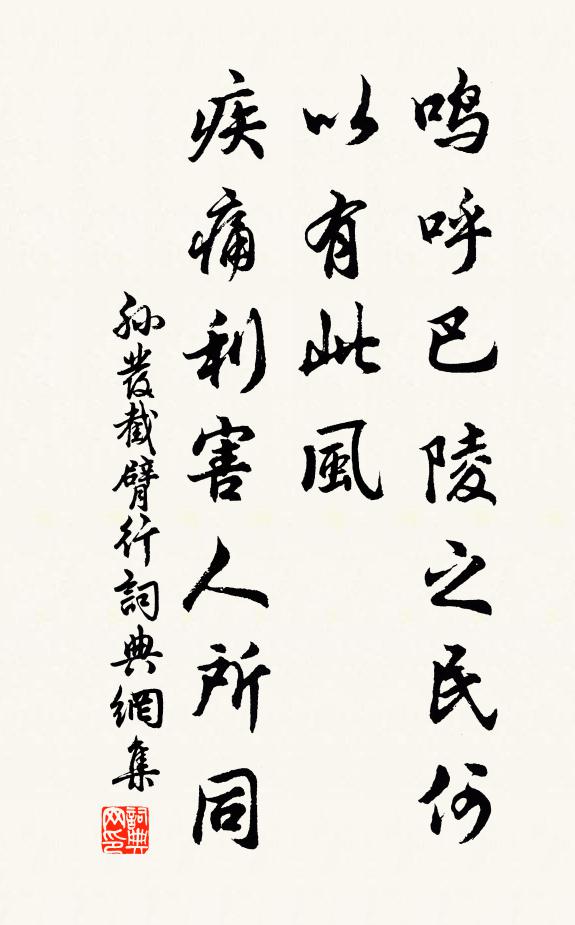 鳴呼巴陵之民何
以有此風
疾痛利害人所同
孙發截臂行詞典網集
詞典网印